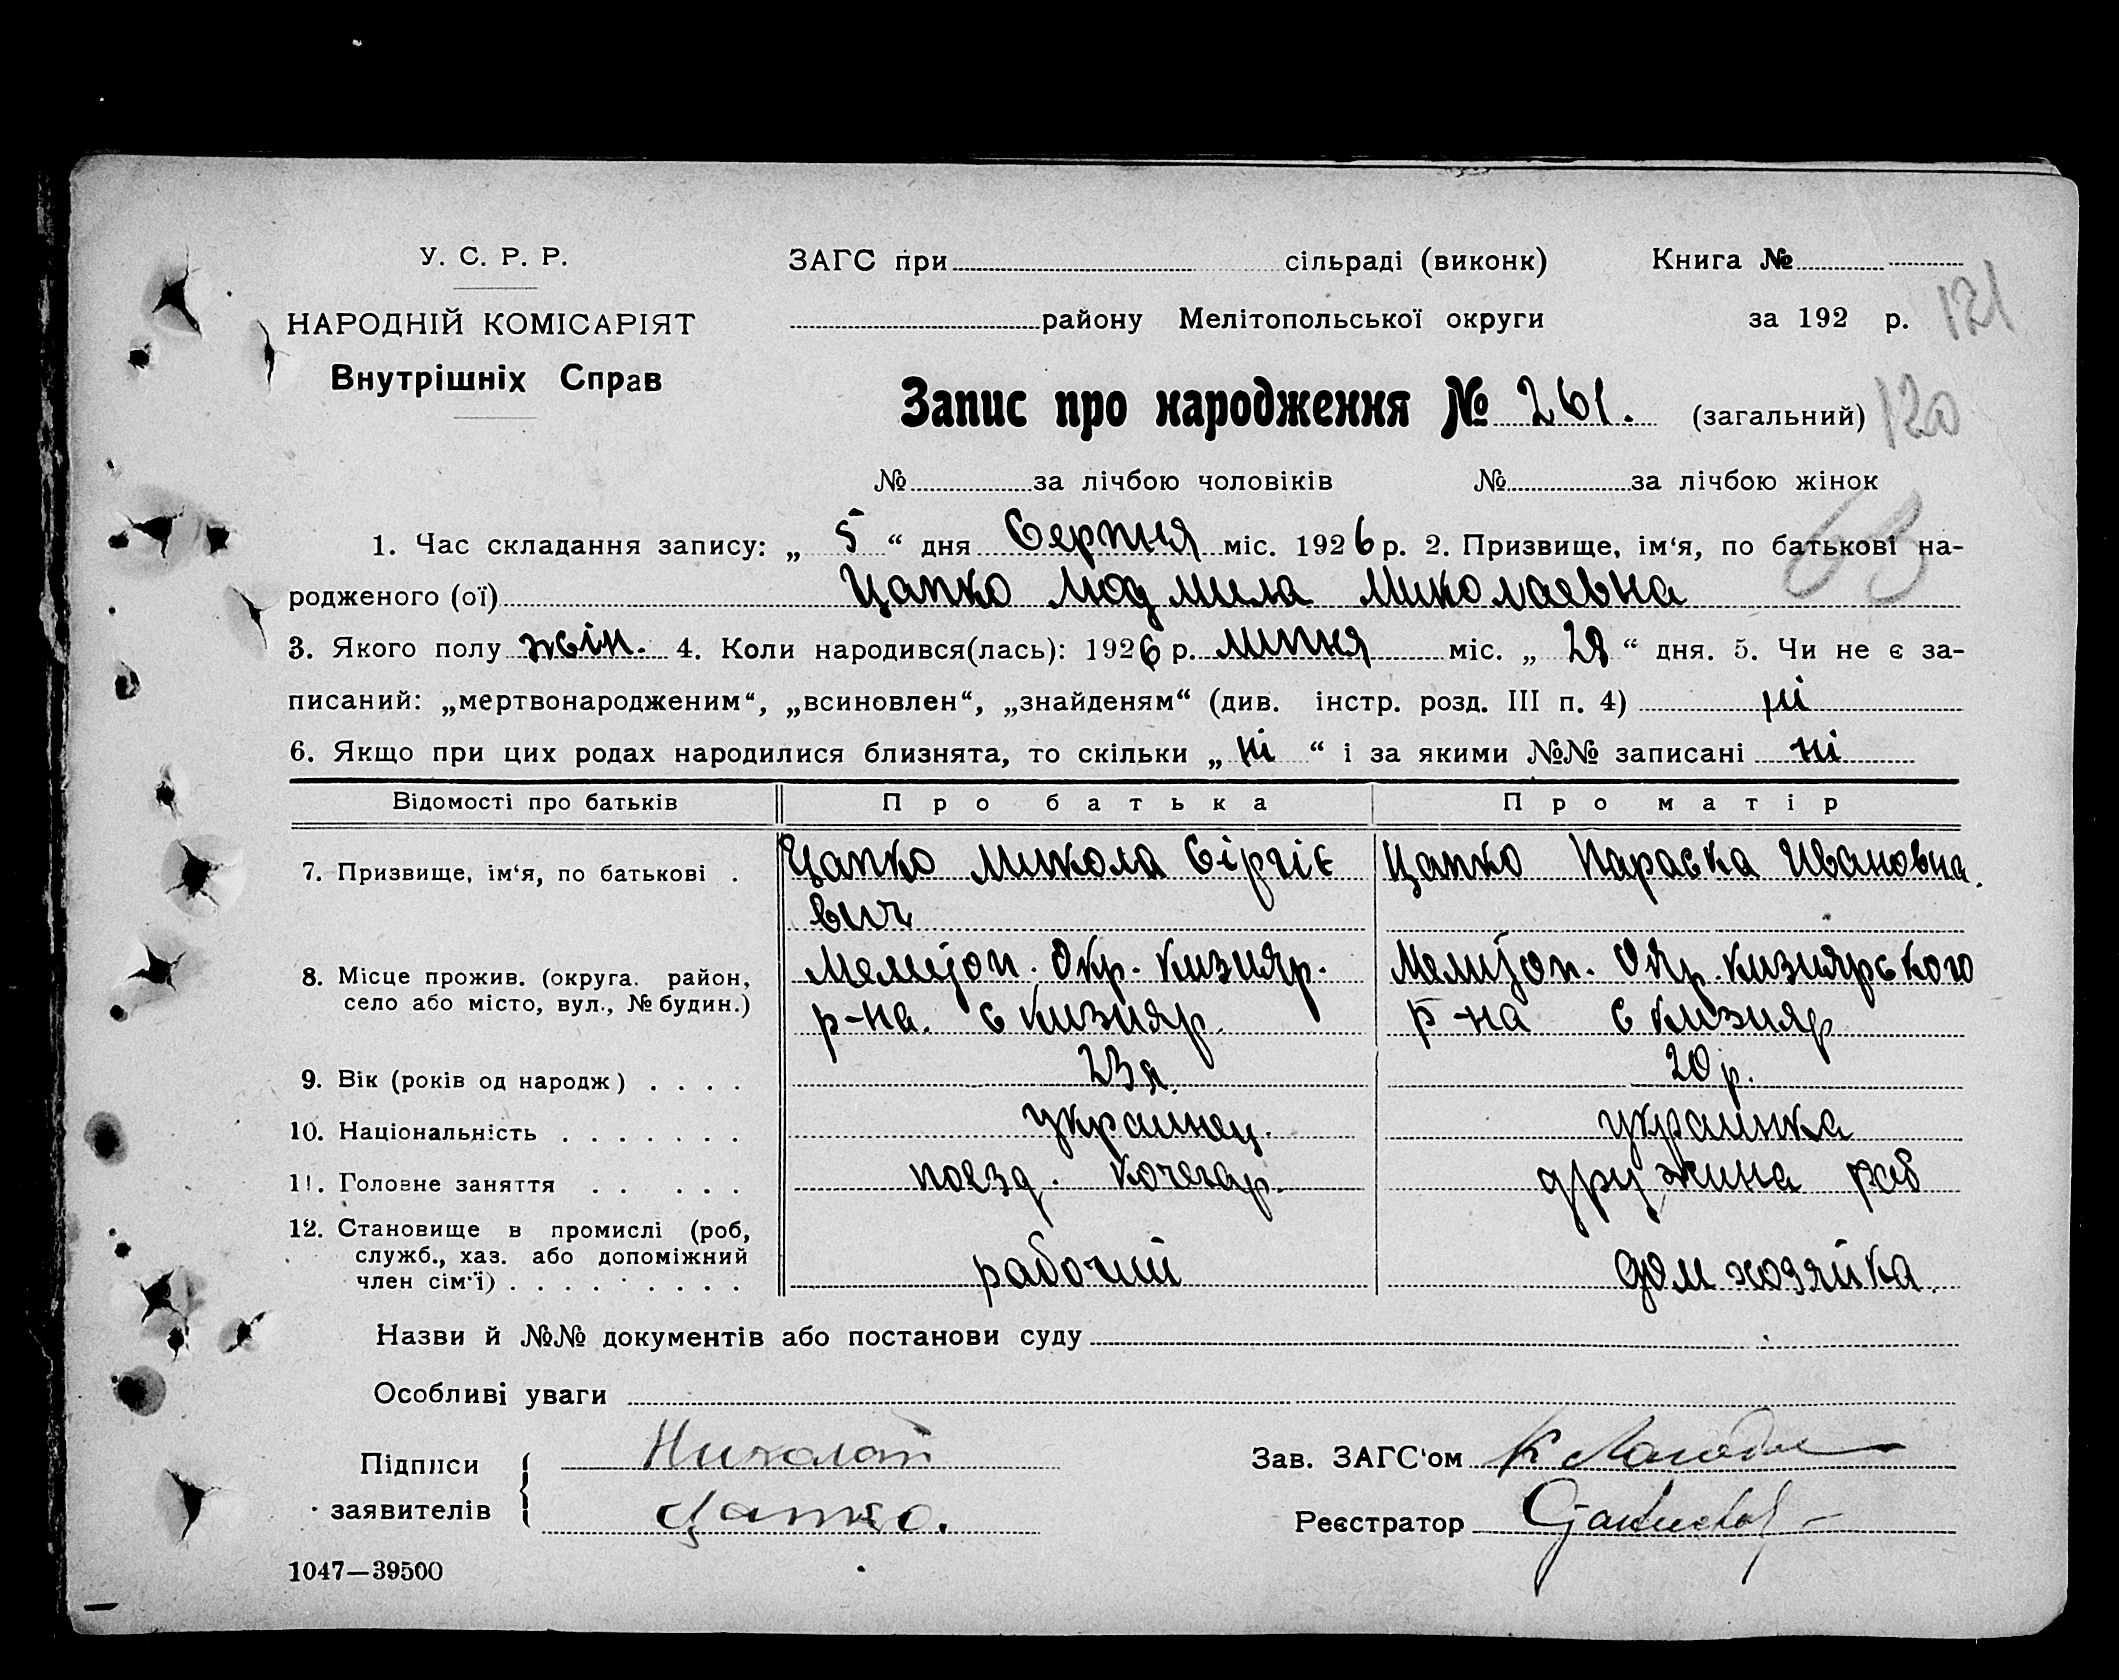 У. С. Р. Р.
НАРОДНІЙ КОМІСАРІЯТ
Внутрішніх Справ
ЗАГС при сільраді (виконк)
району Мелітопольської округи
Книга №
за 192 р.
121
Запис про народження № 261. (загальний)
120
№ за лічбою чоловіків № за лічбою жінок
63
1. Час складання запису: „ 5 “ дня Серпня міс. 1926 р. 2. Призвище, ім‘я, по батькові на-
родженого (ої) Цапко Людмила Миколаевна
3. Якого полу жін. 4. Коли народився(лась): 1926 р. липня міс. „ 28 “ дня. 5. Чи не є за-
писаний: „мертвонародженим“, „всиновлен“, „знайденям“ (див. інстр. розд. III п. 4) ні
6. Якщо при цих родах народилися близнята, то скільки „ ні “ і за якими №№ записані ні
Відомості про батьків Про батька Про матір
7. Призвище, ім‘я, по батькові . Цапко Микола Сіргіє Цапко Параска Ивановна.
вич
8. Місце прожив. (округа. район, Мелитоп. Окр. Кизияр. Мелитоп. Окр. Кизиярского
село або місто, вул., № будин.) р-на. с Кизияр. р-на с Кизияр
9. Вік (років од народж) . . . . 23 р. 20 р.
10. Національність . . . . . . . украинец. украинка
11. Головне заняття . . . . . поезд. кочегар. дружина раб
12. Становище в промислі (роб,
служб., хаз. або допоміжний
член сім‘ї) . . . . . . . . рабочий дом хозяйка.
Назви й №№ документів або постанови суду
Особливі уваги
Підписи
заявителів
Николай
Цапко.
Зав. ЗАГС‘ом
Реєстратор
1047—39500